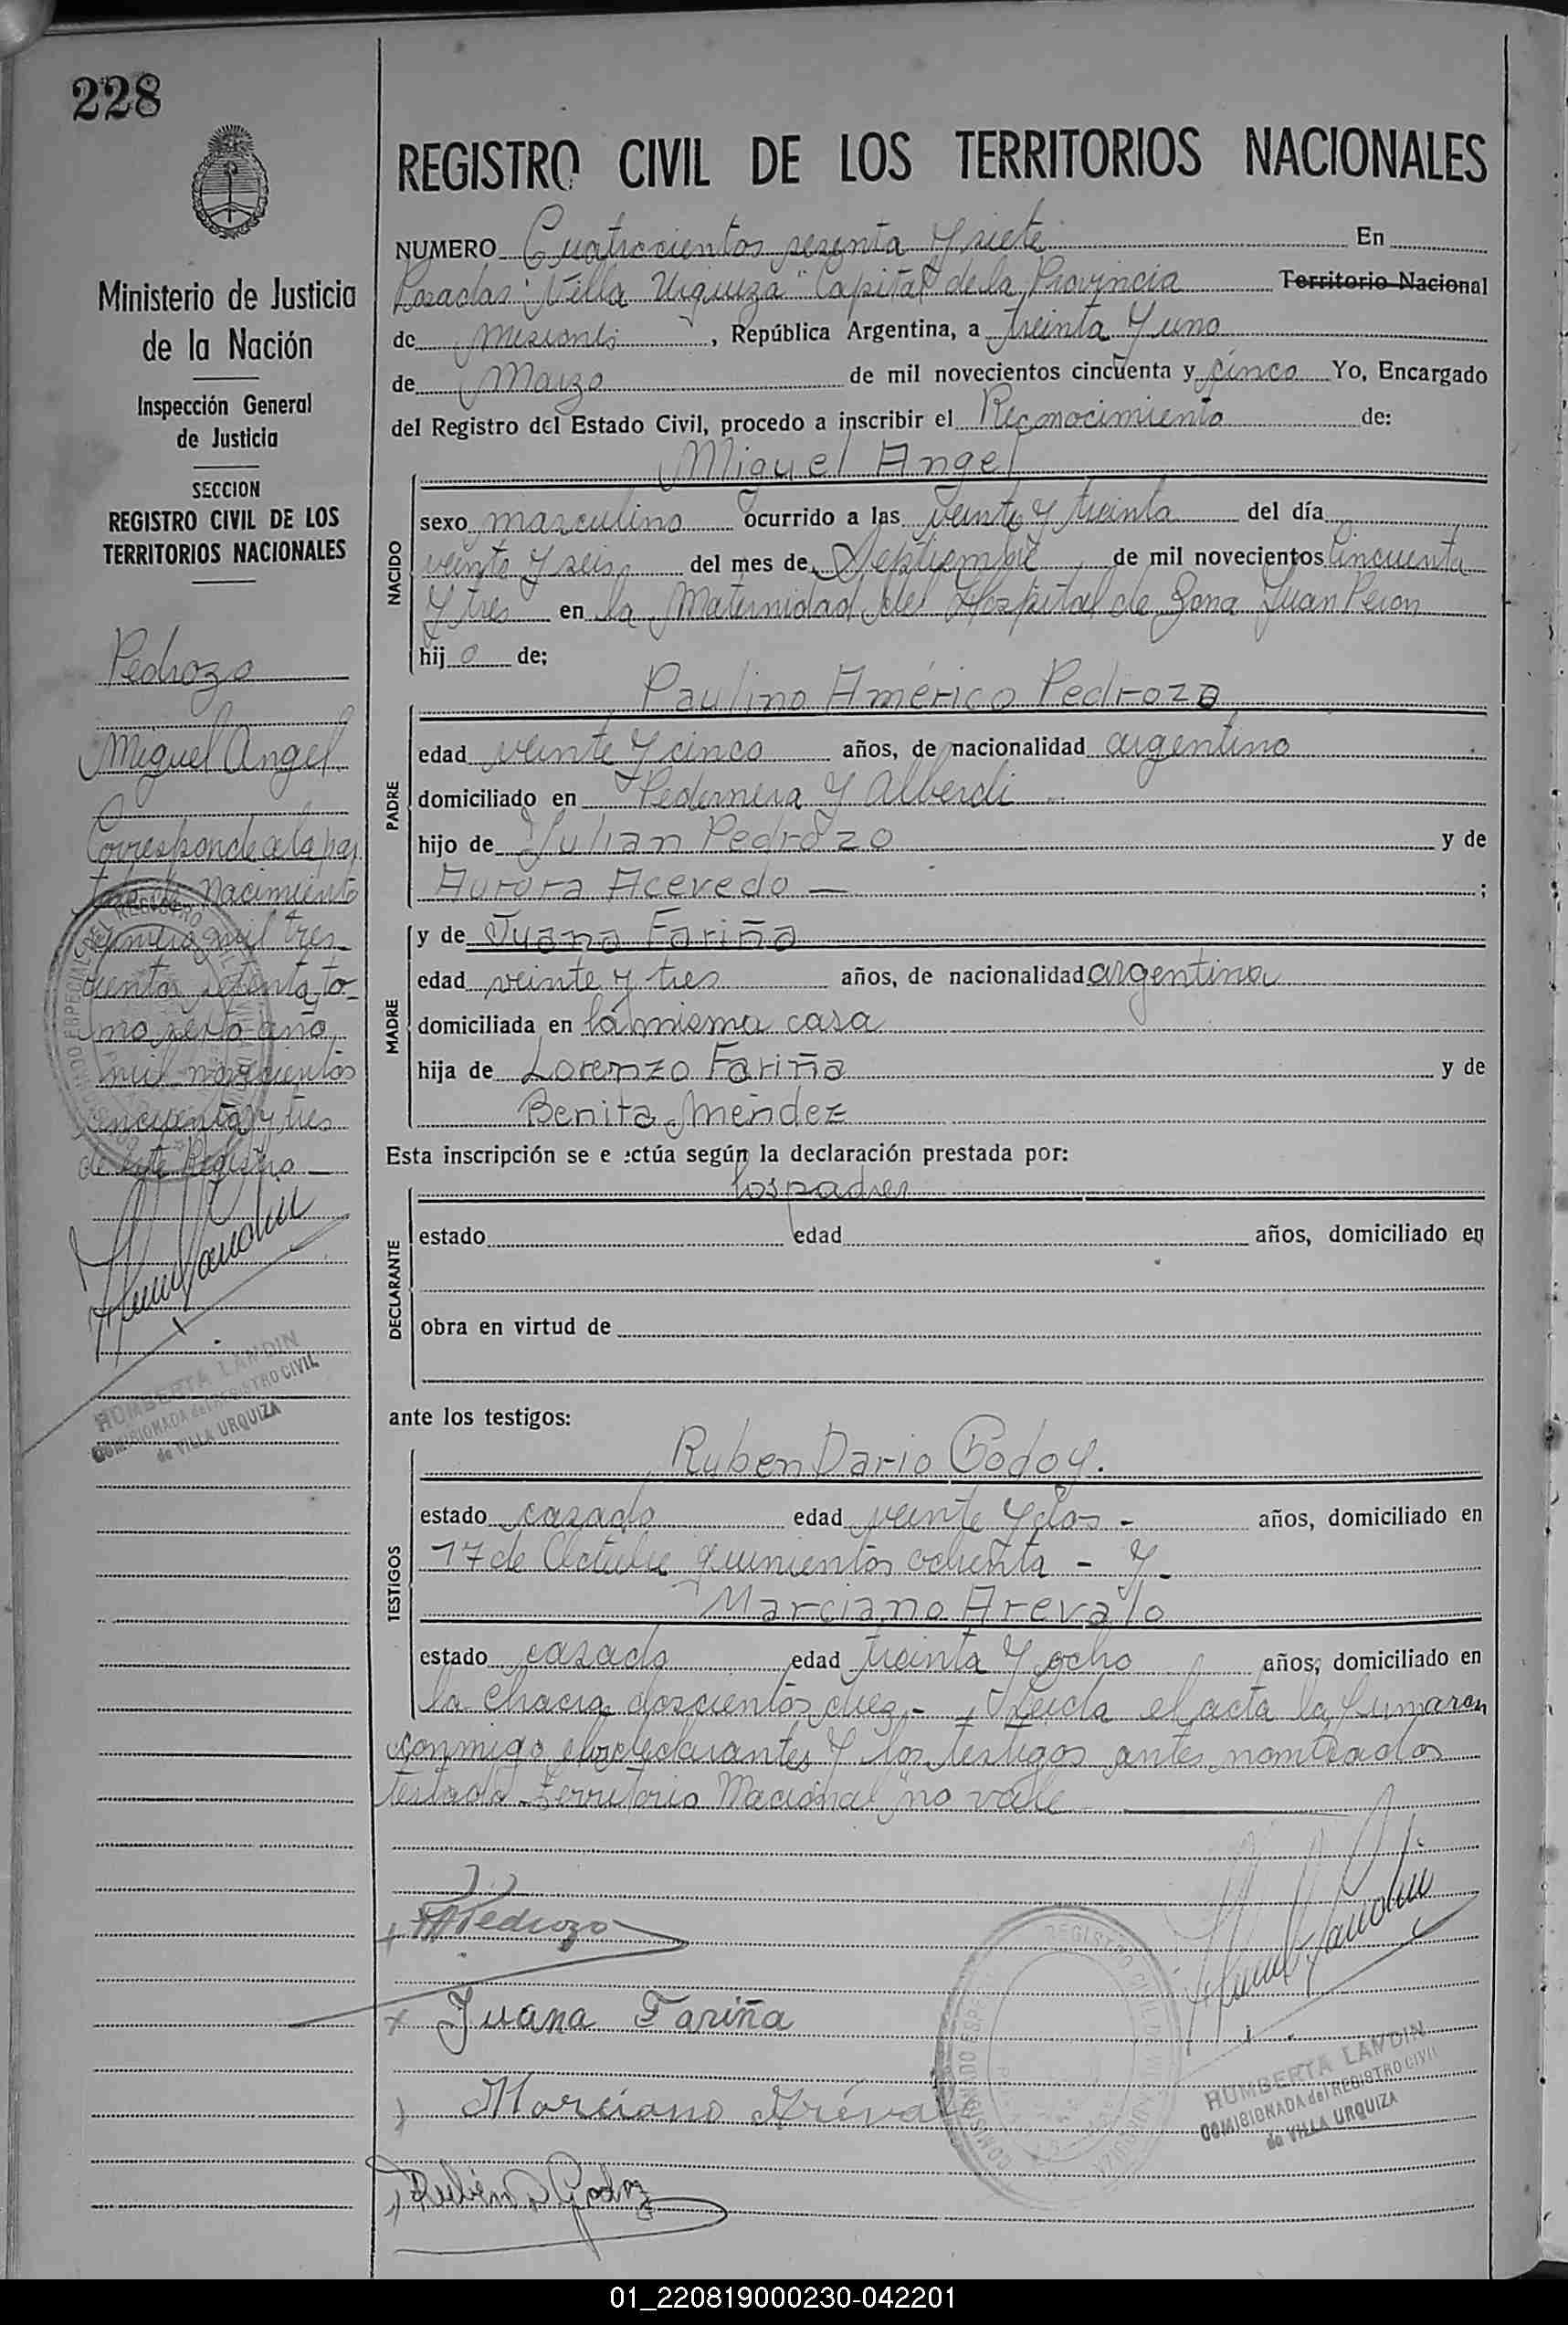 228
Ministerio de Justicia
de la Nación
Inspección General
de Justicia
SECCION
REGISTRO CIVIL DE LOS
TERRITORIOS NACIONALES
Pedrozo
Miguel Angel
Corresponde a la par
tida de Nacimiento
número mil tres-
cientos setenta, to-
mo sexto año
mil novecientos
cincuenta y tres
de este Registro
HUMBERTA LANDIN
COMISIONADA del REGISTRO CIVIL
de VILLA URQUIZA
REGISTRO CIVIL DE LOS TERRITORIOS NACIONALES
NUMERO Cuatrocientos sesenta y siete En
Posadas "Villa Urquiza" Capital de la Provincia Territorio Nacional
de Misiones, República Argentina, a treinta y uno
de Marzo de mil novecientos cincuenta y cinco Yo, Encargado
del Registro del Estado Civil, procedo a inscribir el Reconocimiento de:
Miguel Angel
NACIDO
sexo masculino ocurrido a las veinte y treinta del día
veinte y seis del mes de Septiembre de mil novecientos cincuenta
y tres en la Maternidad del Hospital de Zona Juan Peron
hijo de:
Paulino Américo Pedrozo
PADRE
edad veinte y cinco años, de nacionalidad argentino
domiciliado en Pedernera y Alberdi
hijo de Julian Pedrozo y de
Aurora Acevedo — ;
y de Juana Fariña
MADRE
edad veinte y tres años, de nacionalidad argentina
domiciliada en la misma casa
hija de Lorenzo Fariña y de
Benita Méndez
Esta inscripción se e ectúa según la declaración prestada por:
los padres
DECLARANTE
estado edad años, domiciliado en
obra en virtud de
ante los testigos:
Ruben Dario Godoy.
TESTIGOS
estado casado edad veinte y dos - años, domiciliado en
17 de Octubre quinientos ochenta - y -
Marciano Arevalo
estado casado edad treinta y ocho años, domiciliado en
la chacra doscientos diez - Leida el acta la firmaron
conmigo los declarantes y los testigos antes nombrados
testado - Territorio Nacional "no vale
PAPedrozo
x Juana Fariña
Marciano Arévalo
Rubén D Godoy
HUMBERTA LANDIN
COMISIONADA del REGISTRO CIVIL
de VILLA URQUIZA
01_220819000230-042201